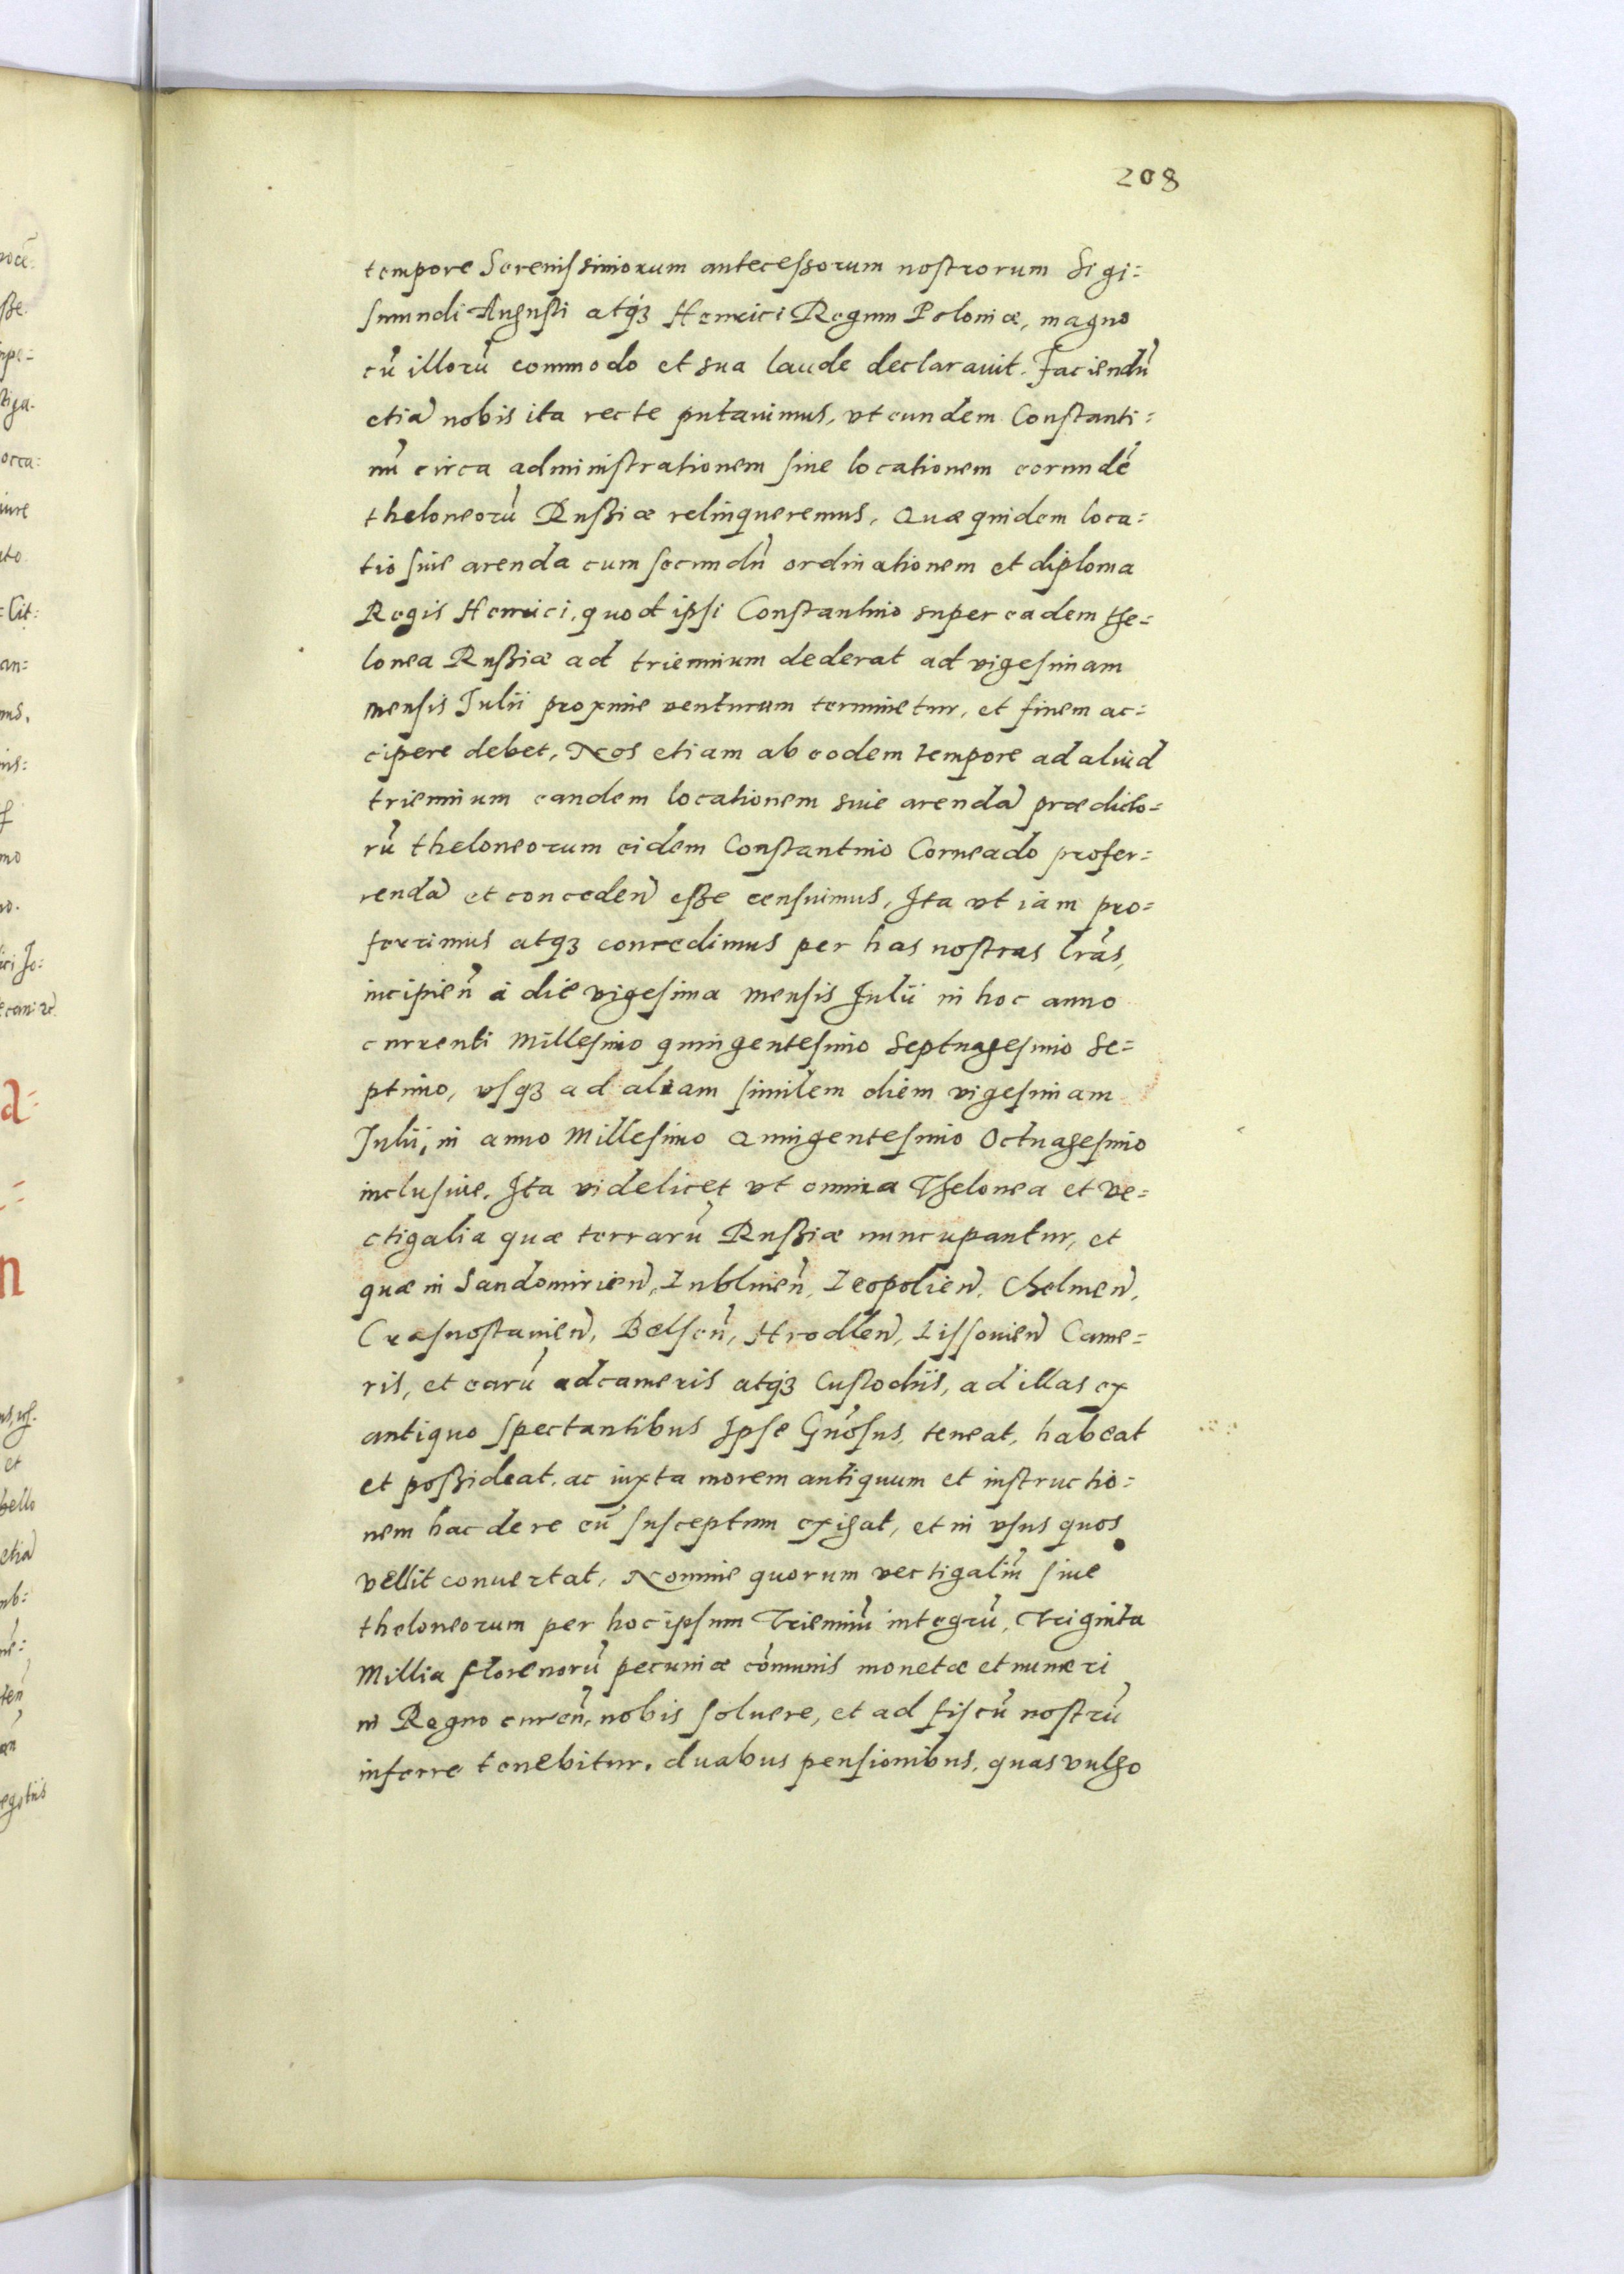 208
tempore Serenissimorum antecessorum nostrorum Sigi=
smundi Augusti atq3 Henrici Regum Poloniæ, magno
cũ illorũ commodo et sua laude declarauit. Faciendũ
etiã nobis ita recte putauimus, vt eundem Constanti=
nũ circa administrationem siue locationem eorundẽ
theloneorũ Russiæ relinqueremus, Quæ quidem loca=
tio siue arenda cum secundũ ordinationem et diploma
Regis Henrici, quod ipsi Constantino super eadem the=
lonea Russiæ ad triennium dederat ad vigesimam
mensis Iulii proxime venturam terminetur, et finem ac=
cipere debet, Nos etiam ab eodem tempore ad aliud
triennium eandem locationem siue arendã prædicto=
rũ theloneorum eidem Constantino Corneado profer=
rendã et conceden̄ esse censuimus, Ita vt iam pro=
ferrimus atq3 concedimus per has nostras lr̃as,
incipien̄ à die vigesima mensis Iulii in hoc anno
currenti Millesimo quingentesimo Septuagesimo Se=
ptimo, vsq3 ad aliam similem diem vigesimam
Iulii, in anno Millesimo Quingentesimo Octuagesimo
inclusiue. Ita videlicet vt omnia Thelonea et ve=
ctigalia quæ terrarũ Russiæ nuncupantur, et
quæ in Sandomirien̄, Lublinen̄, Leopolien̄, Chelmen̄,
Crasnostauien̄, Belsen̄, Hrodlen̄, Lissouien̄ Came=
ris, et earũ adcameris atq3 Custodiis, ad illas ex
antiquo spectantibus Ipse Gñosus, teneat, habeat
et possideat, ac iuxta morem antiquum et instructio=
nem hac de re eũ susceptum exigat, et in vsus quos
vellit conuertat, Nomine quorum vectigaliũ siue
theloneorum per hoc ipsum Trienniũ integrũ, Triginta
Millia florenorũ pecuniæ cõmunis monetæ et numeri
in Regno curen̄, nobis soluere, et ad fiscũ nostrũ
inferre tenebitur, duabus pensionibus, quas vulgo